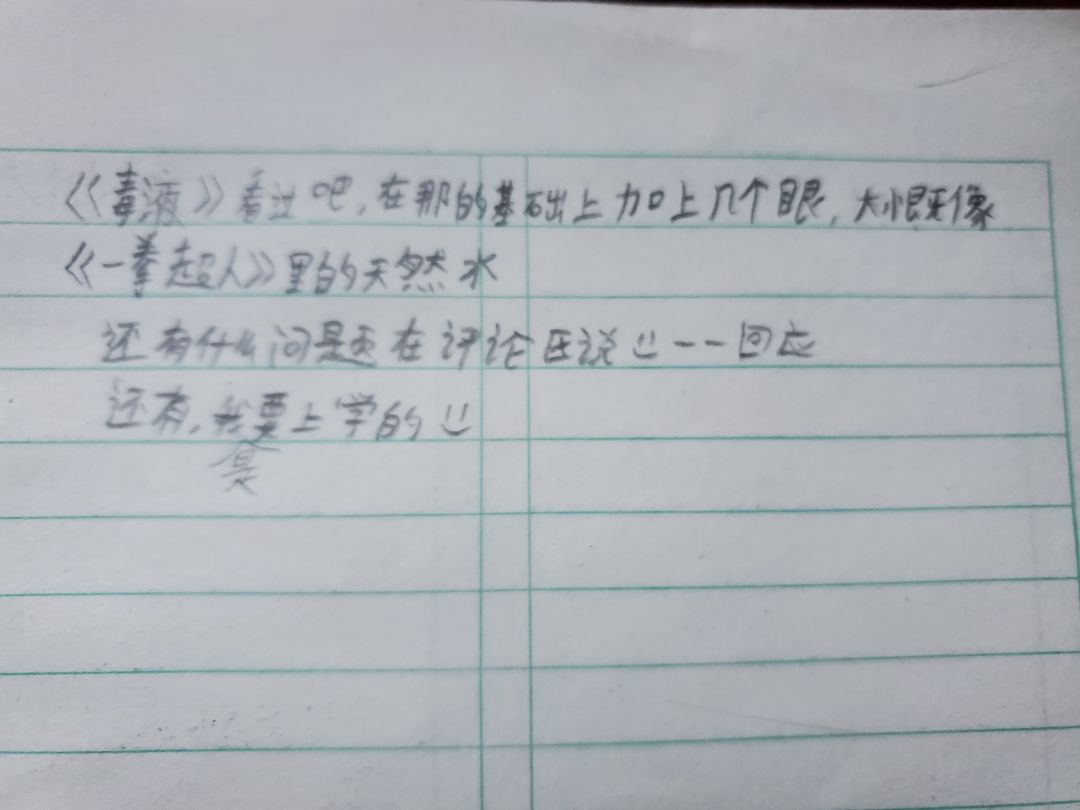 《毒液》看过吧,在那的基础上加上几个眼,大概像
《一拳超人》里的天然水
还有什么问题在评论区说 一一回应
还有,我是要上学的